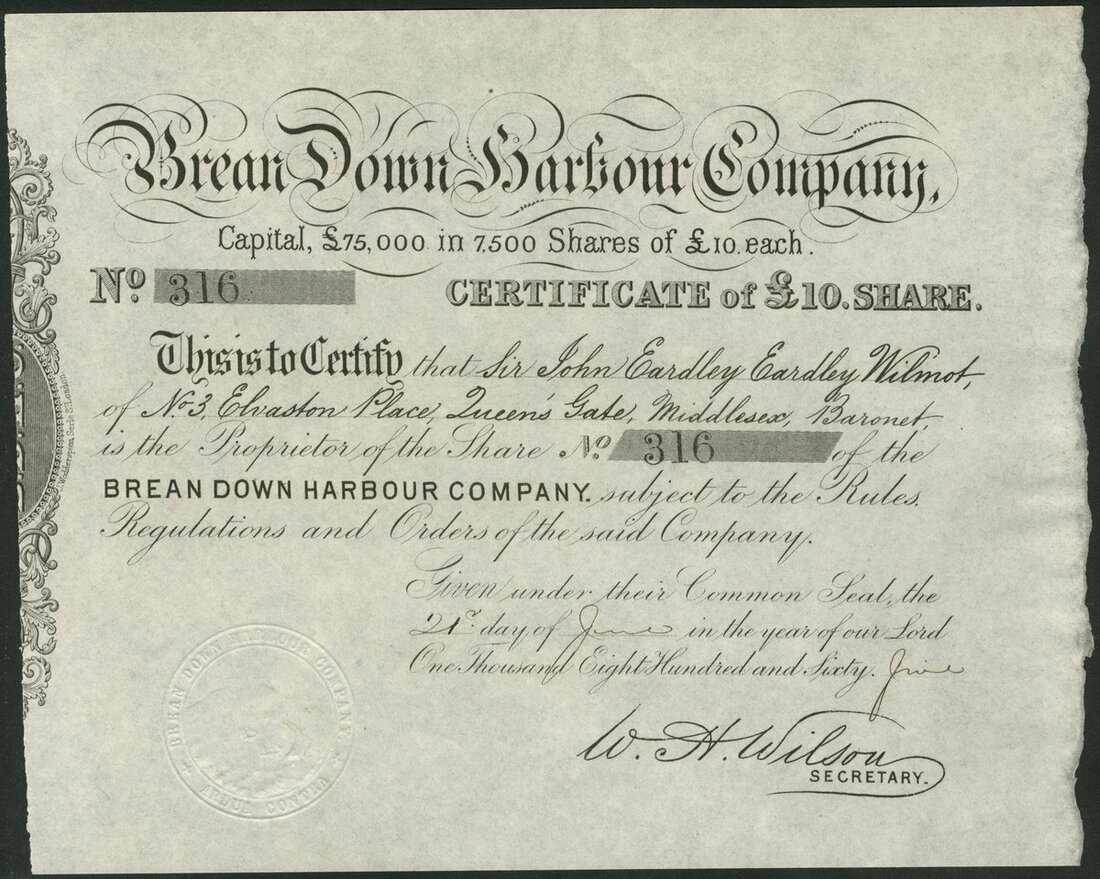 Brean Down Harbour Company,
Capital, £75,000 in 7,500 Shares of £10. each.
No. 316
CERTIFICATE of £10. SHARE.
This is to Certify that Sir John Eardley Eardley Wilmot,
of No 3, Elvaston Place, Queen's Gate, Middlesex, Baronet,
is the Proprietor of the Share No. 316 of the
BREAN DOWN HARBOUR COMPANY. subject to the Rules.
Regulations and Orders of the said Company.
Given under their Common Seal, the
21st day of June in the year of our Lord
One Thousand Eight Hundred and Sixty. five
W. H. Wilson
SECRETARY.
BREAN DOWN HARBOUR COMPANY
CONTRA